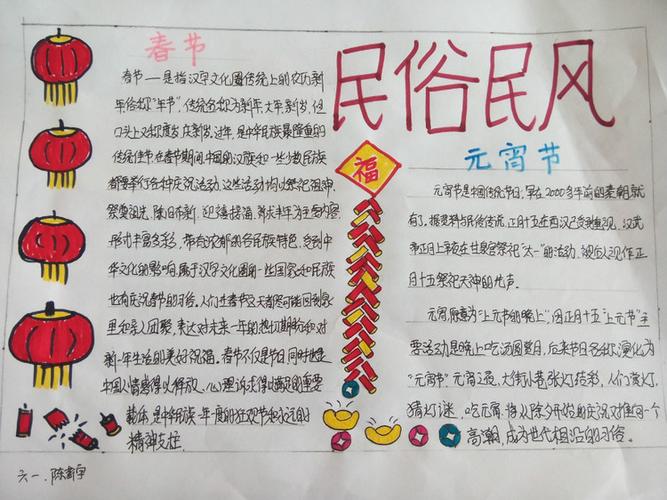 春节
春节——是指汉字文化圈传统上的农历新
年俗称"年节",传统名称为新年、大年、新岁,但
口头上又称度岁、庆新岁、过年,是中华民族最隆重的
传统佳节在春节期间中国的汉族和一些少数民族
都要举行各种庆祝活动。这些活动均以祭祀祖神
祭奠祖先、除旧布新、迎禧接福、祈求丰年为主要内容
形式丰富多彩,带有浓郁的各民族特色。受到中
华文化的影响,属于汉字文化圈的一些国家和民族
也有庆祝春节的习俗。人们在春节这天都尽可能回到家
里和亲人团聚,表达对未来一年的热切期盼和对
新一年生活的美好祝福。春节不仅是节日,同时也是
中国人情感得以释放、心理诉求得以满足的重要
载体,是中华民族一年一度的狂欢节和永远的
精神支柱.
民俗民风
福
元宵节
元宵节是中国传统节日,早在2000多年前的秦朝就
有了。据资料与民俗传说,正月十五在西汉已受到重视,汉武
帝正月上辛夜在甘泉宫祭祀"太一"的活动,被后人视作正
月十五祭祀天神的先声。
元宵原意为"上元节的晚上",因正月十五"上元节"主
要活动是晚上吃汤圆赏月,后来节日名称演化为
"元宵节"元宵之夜,大街小巷张灯结彩,人们赏灯,
猜灯谜,吃元宵,将从除夕开始的庆祝又推向一个
高潮,成为世代相沿的习俗。
六一、陈